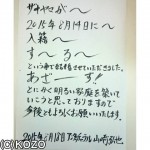 ザキヤマが〜
2015年8月14日に〜
入籍〜
す〜る〜
という事で結婚させていただきました。
あざーす!!
とにかく明るい家庭を築いて
いこうと思っておりますので
今後ともよろしくお願いいたします。
2015年8月18日 アンタッチャブル 山崎弘也
(C)KOZO